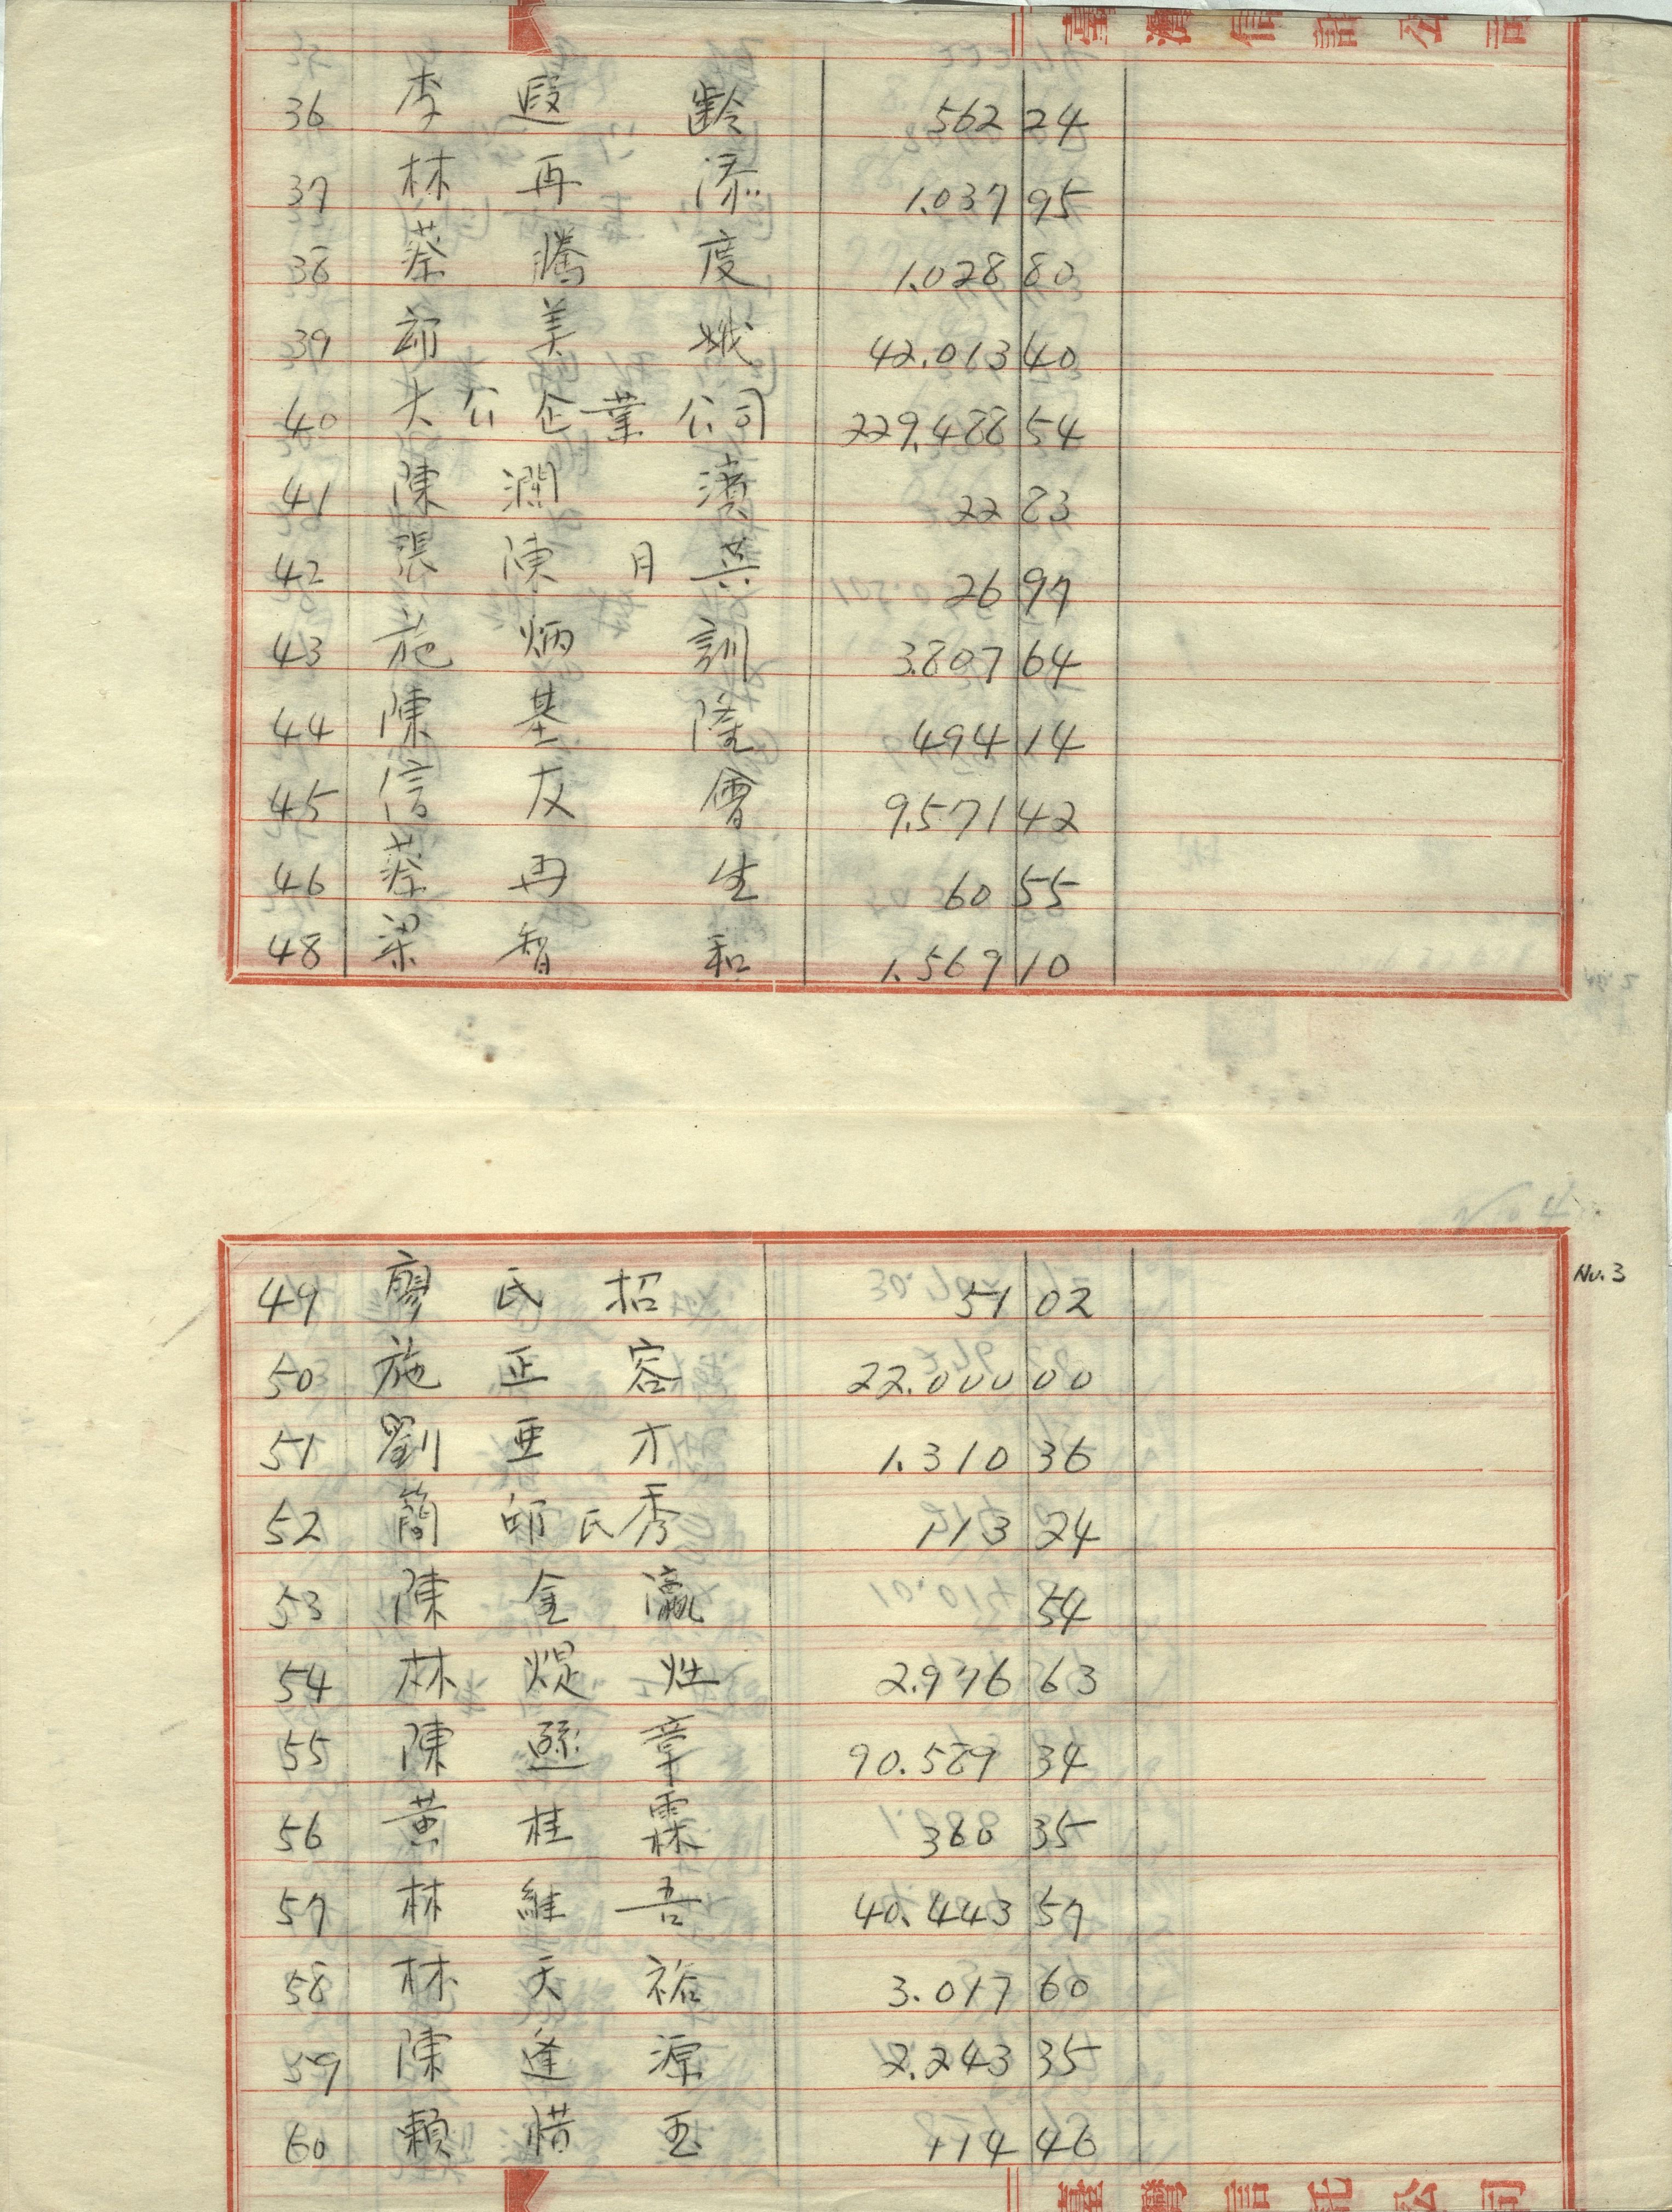 臺灣信託公司
36 李遐齡 562 24
37 林再添 1.037 95
38 蔡騰度 1.028 80
39 美娥 42.013 40
40 大公企業公司 229.488 54
41 陳瀾濱 22 83
42 張陳月英 26 97
43 施炳訓 3.807 64
44 陳基隆 494 14
45 信友會 9.571 42
46 蔡再生 60 55
48 梁智和 1.569 10
No. 4
No. 3
49 廖氏招 51 02
50 施正容 22.000 00
51 劉亜才 1.310 36
52 簡邱氏秀 113 24
53 陳金瀛 54
54 林煶灶 2.976 63
55 陳遜章 90.589 34
56 黃桂霖 388 35
57 林維吾 40.443 57
58 林天祐 3.017 60
59 陳逢源 2.243 35
60 賴惜玉 114 46
臺灣信託公司